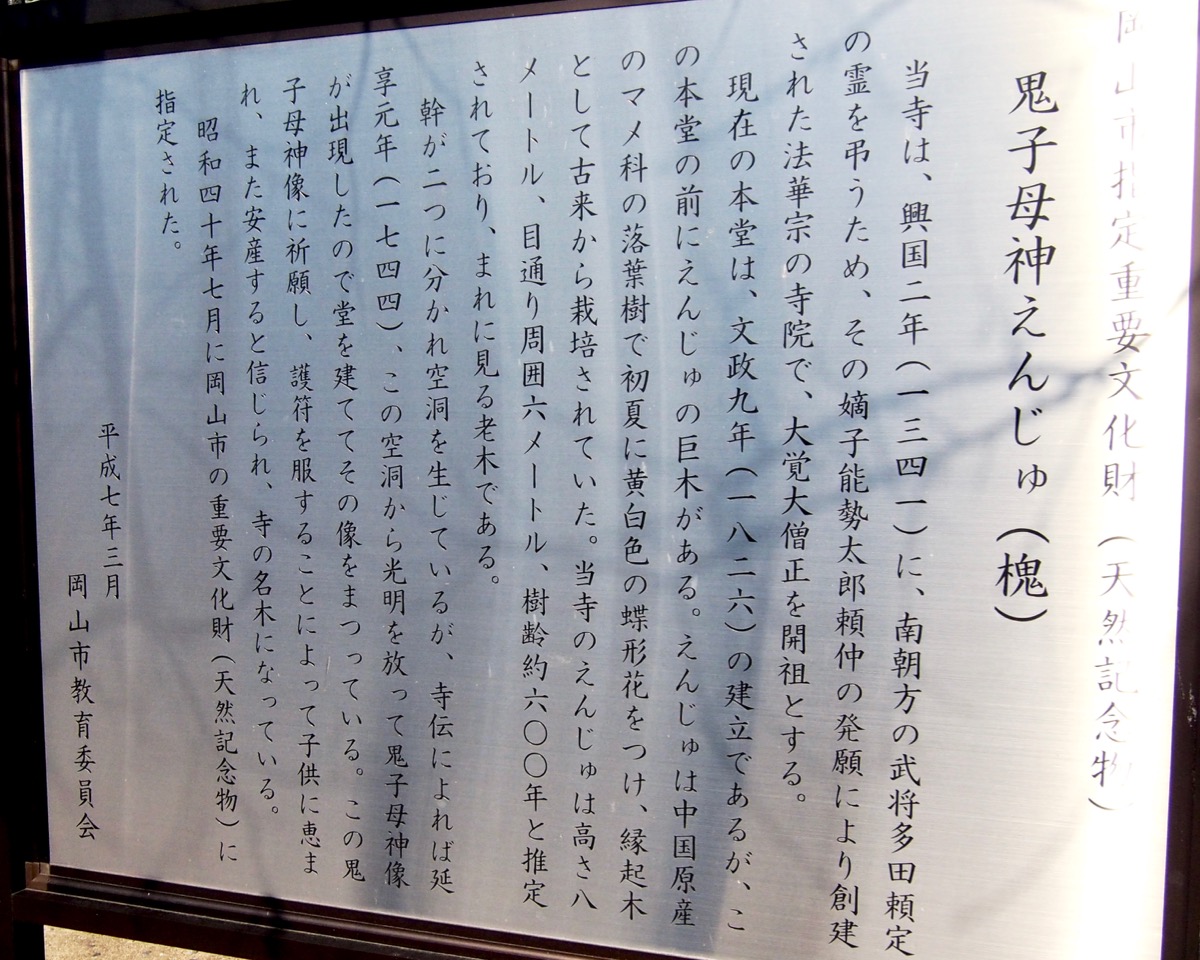 岡山市指定重要文化財（天然記念物）
鬼子母神えんじゅ（槐）
当寺は、興国二年（一三四一）に、南朝方の武将多田頼定
の霊を弔うため、その嫡子能勢太郎頼仲の発願により創建
された法華宗の寺院で、大覚大僧正を開祖とする。
現在の本堂は、文政九年（一八二六）の建立であるが、こ
の本堂の前にえんじゅの巨木がある。えんじゅは中国原産
のマメ科の落葉樹で初夏に黄白色の蝶形花をつけ、縁起木
として古来から栽培されていた。当寺のえんじゅは高さ八
メートル、目通り周囲六メートル、樹齢約六〇〇年と推定
されており、まれに見る老木である。
幹が二つに分かれ空洞を生じているが、寺伝によれば延
享元年（一七四四）、この空洞から光明を放って鬼子母神像
が出現したので堂を建ててその像をまつっている。この鬼
子母神像に祈願し、護符を服することによって子供に恵ま
れ、また安産すると信じられ、寺の名木になっている。
昭和四十年七月に岡山市の重要文化財（天然記念物）に
指定された。
平成七年三月
岡山市教育委員会